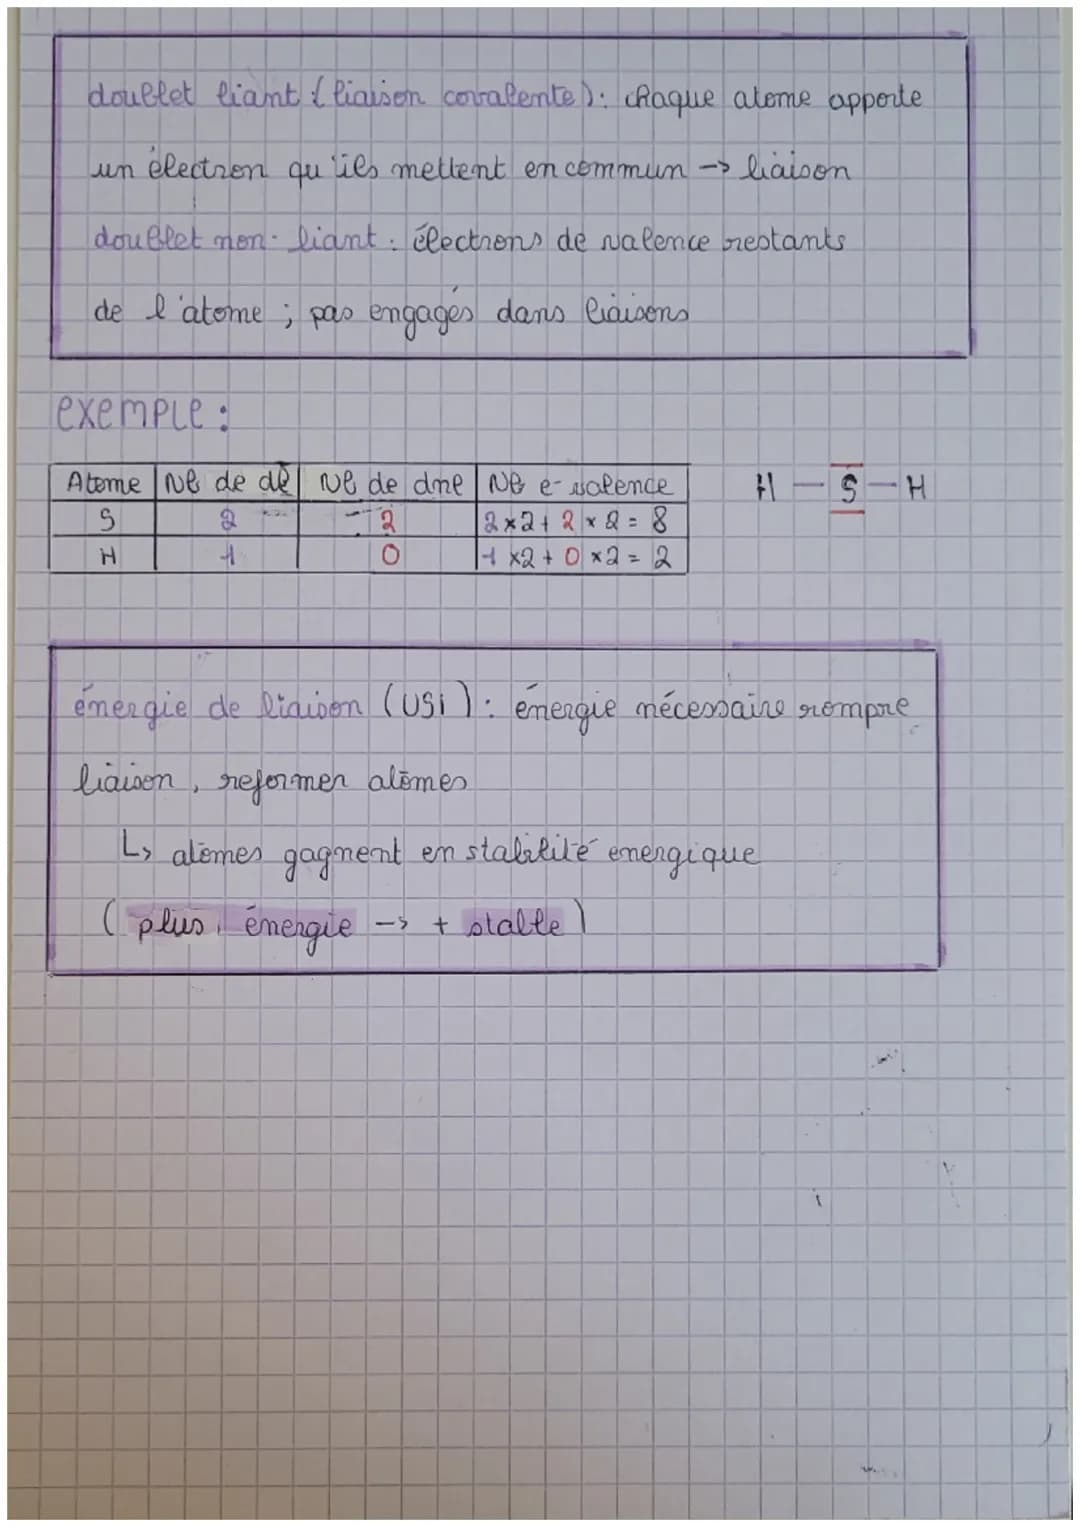 doublet liant (liaison covalente): chaque atome apporte
un électron qu'ils mettent en commun -> liaison
doublet non-liant : électrons de valence restants
de l'atome ; pas engagés dans liaisons
exemple :
Atome Nb de dl Nb de dnl Nb e- valence
S 2 2 2×2+ 2×2 = 8
H 1 0 1×2+ 0×2 = 2
H - S - H
énergie de liaison (USI) : énergie nécessaire rompre
liaison, reformer atomes
↳ atomes gagnent en stabilité énergique
(plus énergie -> + stable)